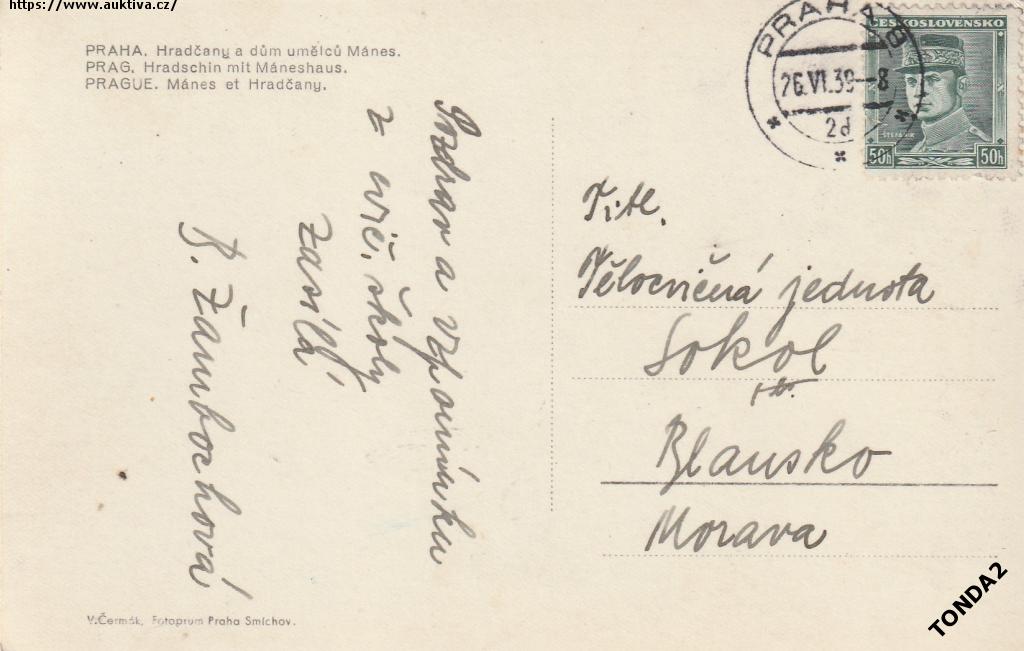 https://www.auktiva.cz/
PRAHA. Hradčany a dům umělců Mánes.
PRAG. Hradschin mit Máneshaus.
PRAGUE. Mánes et Hradčany.
Pozdrav a vzpomínku
z cvič. školy
zasílá
B. Žambochová
PRAHA 8
26.VI.39-8
2d
ČESKOSLOVENSKO
ŠTEFÁNIK
50h 50h
Titl.
Tělocvičná jednota
Sokol
Blansko
Morava
V.Čermák, Fotoprum Praha Smíchov.
TONDA2